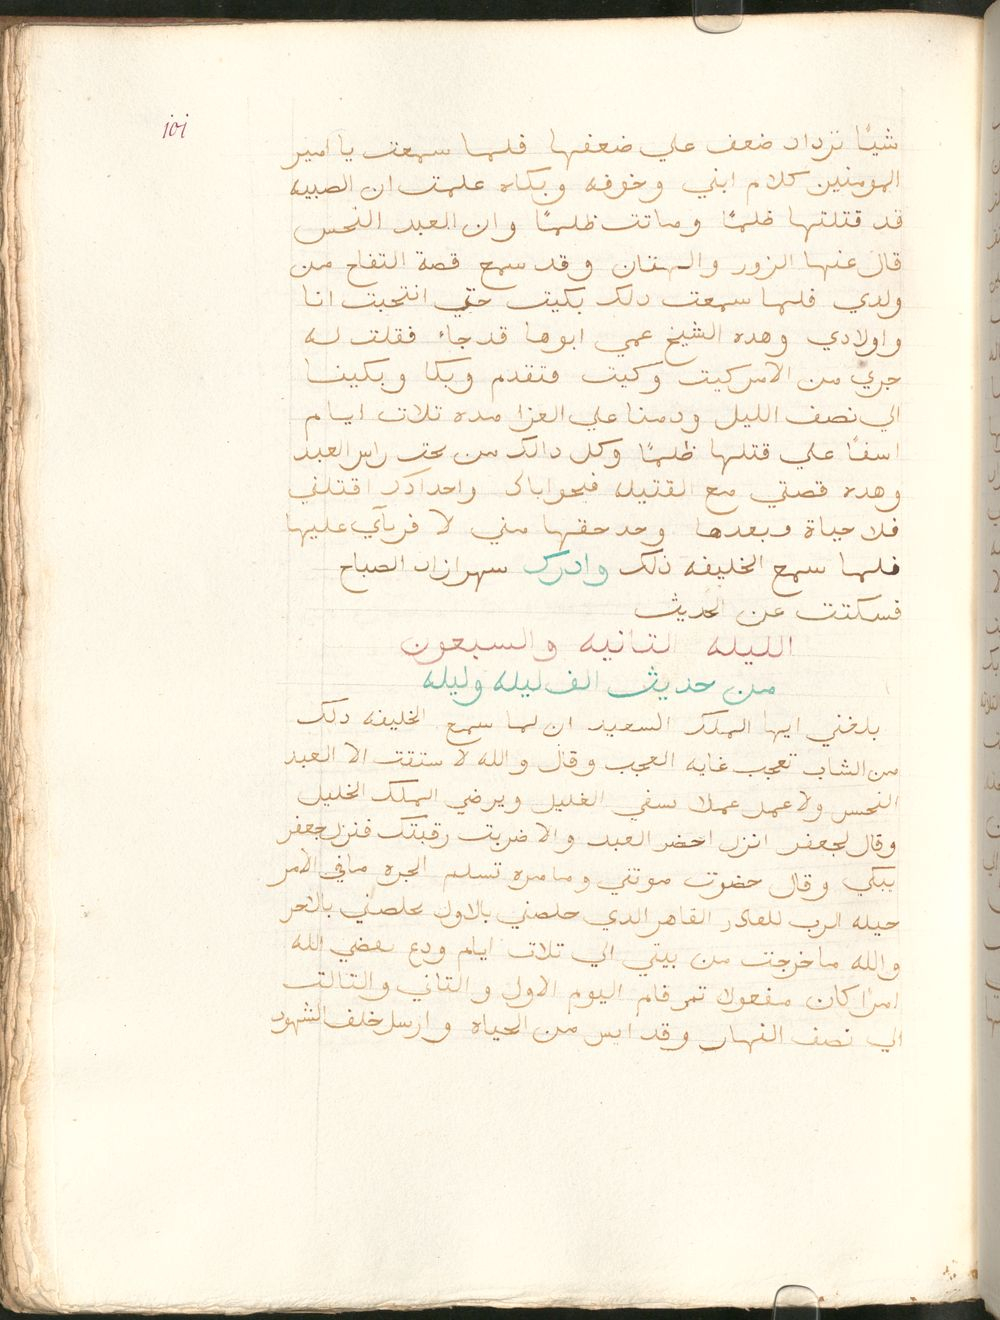 ١٥١
شيئًا تزداد ضعف علي ضعفها فلما سمعت يا امير
المومنين كلام ابني وخوفه وبكاه علمت ان الصبيه
قد قتلتها ظلمًا وماتت ظلمًا وان العبد النحس
قال عنها الزور والبهتان وقد سمع قصة التفاح من
ولدي فلما سمعت دلك بكيت حتي انتحبت انا
واولادي وهده الشيخ عمي ابوها قد جاء فقلت له
جري من الامر كيت وكيت فتقدم وبكا وبكينا
الي نصف الليل ودمنا علي العزا مده تلات ايام
اسفًا علي قتلها ظلمًا وكل دالك من تحت راس العبد
وهده قصتي مع القتيله اقتلني
فلا حياة وبعدها وحد حقها مني لا عليها
فلما سمع الخليفه ذلك وادرك سهرازاد الصباح
فسكتت عن الحديث
الليله التانيه والسبعون
من حديث الف ليله وليله
بلغني ايها الملك السعيد ان لما سمع الخليفه دلك
من الشاب تعجب غايه العجب وقال والله لا ستقت الا العبد
النحس ولاعمل عملا سفي الغليل ويرضي الملك الخليل
وقال لجعفر انزل احضر العبد والا ضربت رقبتك فنزل جعفر
يبكي وقال حضرت موتتي وما مره تسلم الجره ما في الامر
حيله الرب القادر القاهر الدي خلصني بالاول يخلصني بالاخر
والله ما خرجت من بيتي الي تلات ايام ودع يقضي الله
امرًا كان مفعولا تم قام اليوم الاول والتاني والتالت
الي نصف النهار وقد ايس من الحياه وارسل خلف الشهود